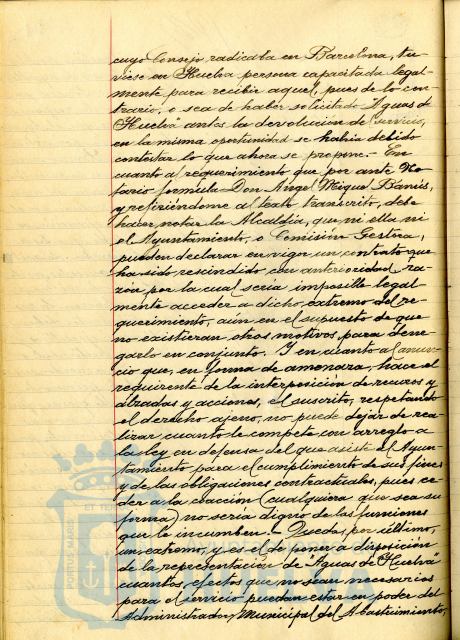 cuyo Consejo radicaba en Barcelona, tu-
viese en Huelva persona capacitada legal-
mente para recibir aquel, pues de lo con-
trario, o sea de haber solicitado "Aguas de
Huelva" antes la devolución del servicio,
en la misma oportunidad se habría debido
contestar lo que ahora se propone.- En
cuanto al requerimiento que por ante No-
tario formula Don Angel Migué Bamis,
y refiriéndome al texto transcrito, debe
hacer notar la Alcaldía, que ni ella ni
el Ayuntamiento, o Comisión Gestora,
pueden declarar en vigor un contrato que
ha sido rescindido con anterioridad, ra-
zón por la cual sería imposible legal-
mente acceder a dicho extremo del re-
querimiento, aún en el supuesto de que
no existieran otros motivos para dene-
garlo en conjunto. Y en cuanto al anun-
cio que, en forma de amenaza, hace el
requirente de la interposición de recursos y
alzadas y acciones, el suscrito, respetando
el derecho ajeno, no puede dejar de rea-
lizar cuanto le compete con arreglo a
la ley en defensa del que asiste al Ayun-
tamiento para el cumplimiento de sus fines
y de las obligaciones contractuales, pues ce-
der a la coacción (cualquiera que sea su
forma) no sería digno de las funciones
que le incumben.- Queda, por último,
un extremo, y es el de poner a disposición
de la representación de "Aguas de Huelva"
cuantos efectos que no sean necesarios
para el servicio puedan estar en poder del
Administrador Municipal del Abastecimiento,
PORTUS MARIS ET TERRAE